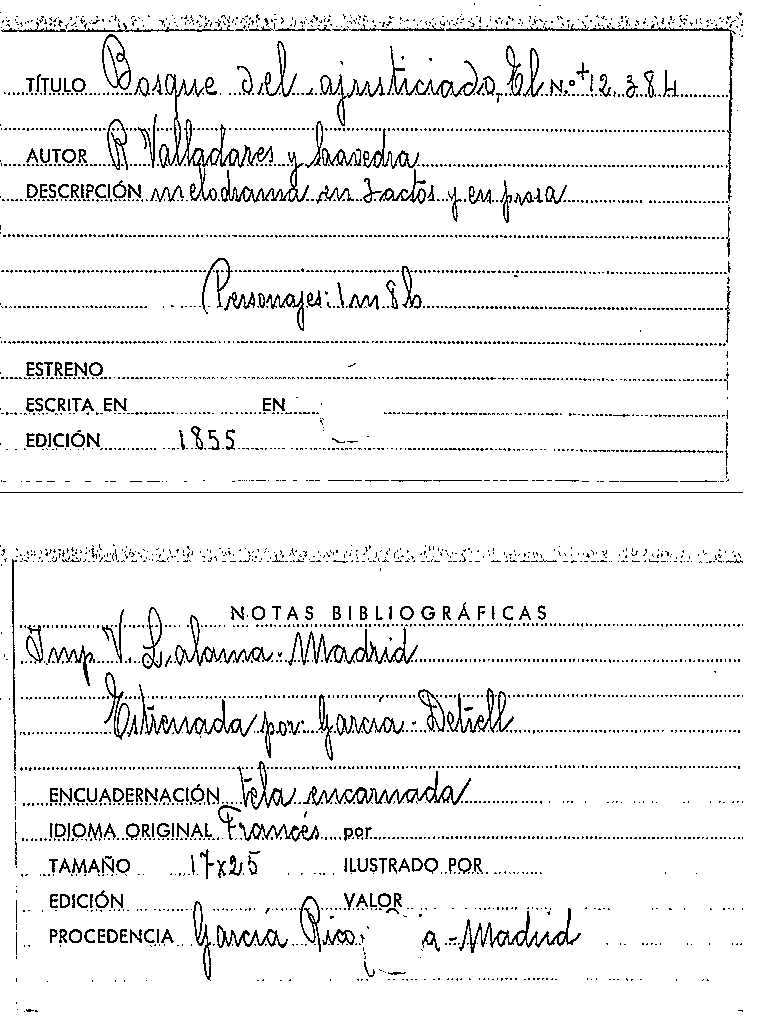 TÍTULO Bosque del ajusticiado, El N.º+12.384
AUTOR R Valladares y Saavedra
DESCRIPCIÓN melodrama en 3 actos y en prosa
Personajes: 1m 8h
ESTRENO
ESCRITA EN EN
EDICIÓN 1855
NOTAS BIBLIOGRÁFICAS
Imp V. Lalama - Madrid
Estrenada por: García - Detrell
ENCUADERNACIÓN tela encarnada
IDIOMA ORIGINAL Francés por
TAMAÑO 17x25 ILUSTRADO POR
EDICIÓN VALOR
PROCEDENCIA García Rico a - Madrid